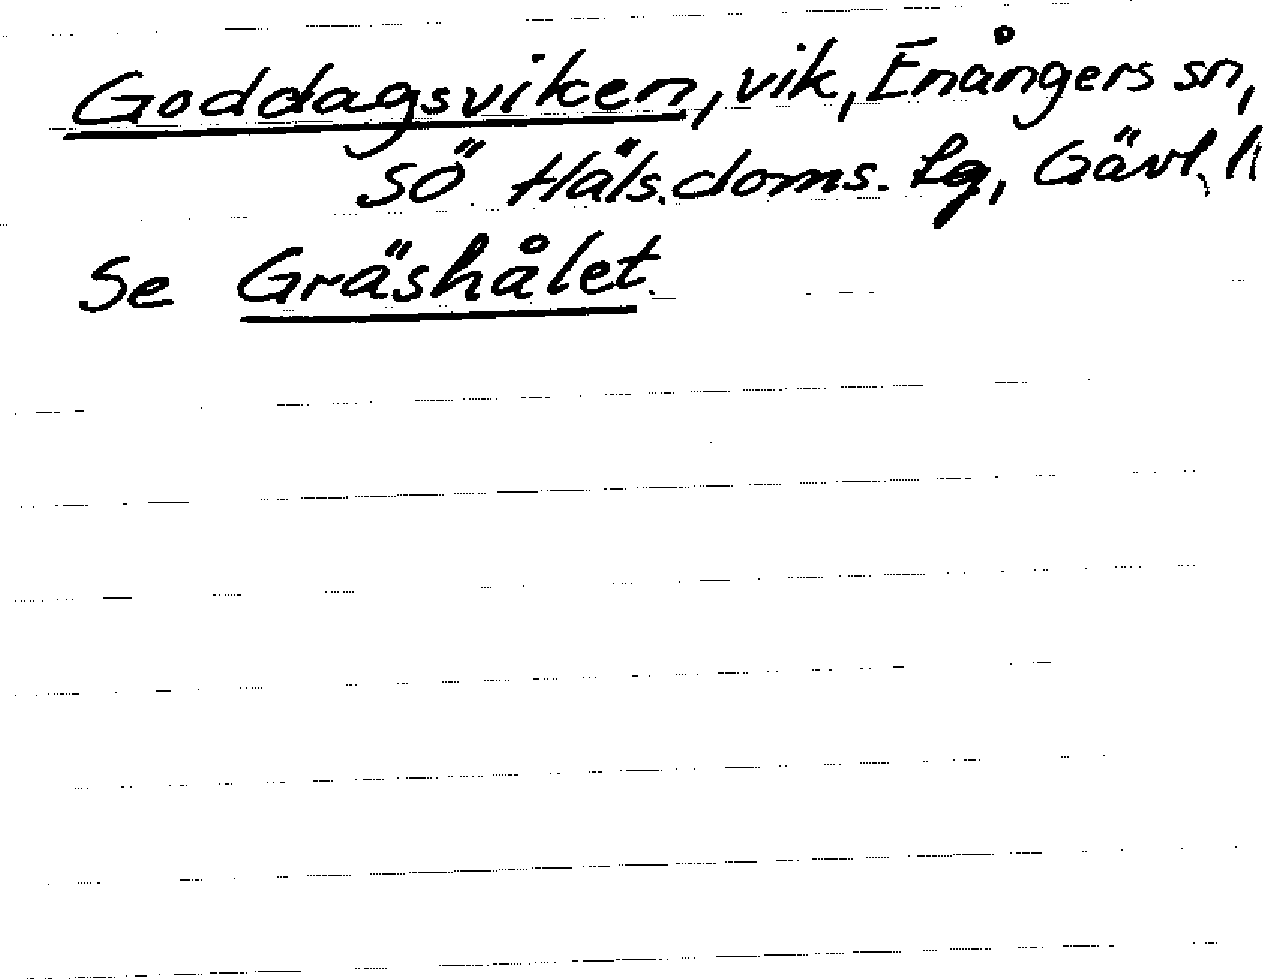 Goddagsviken, vik, Enångers sn,
SÖ Häls. doms. Lg, Gävl. l
Se Gräshålet.